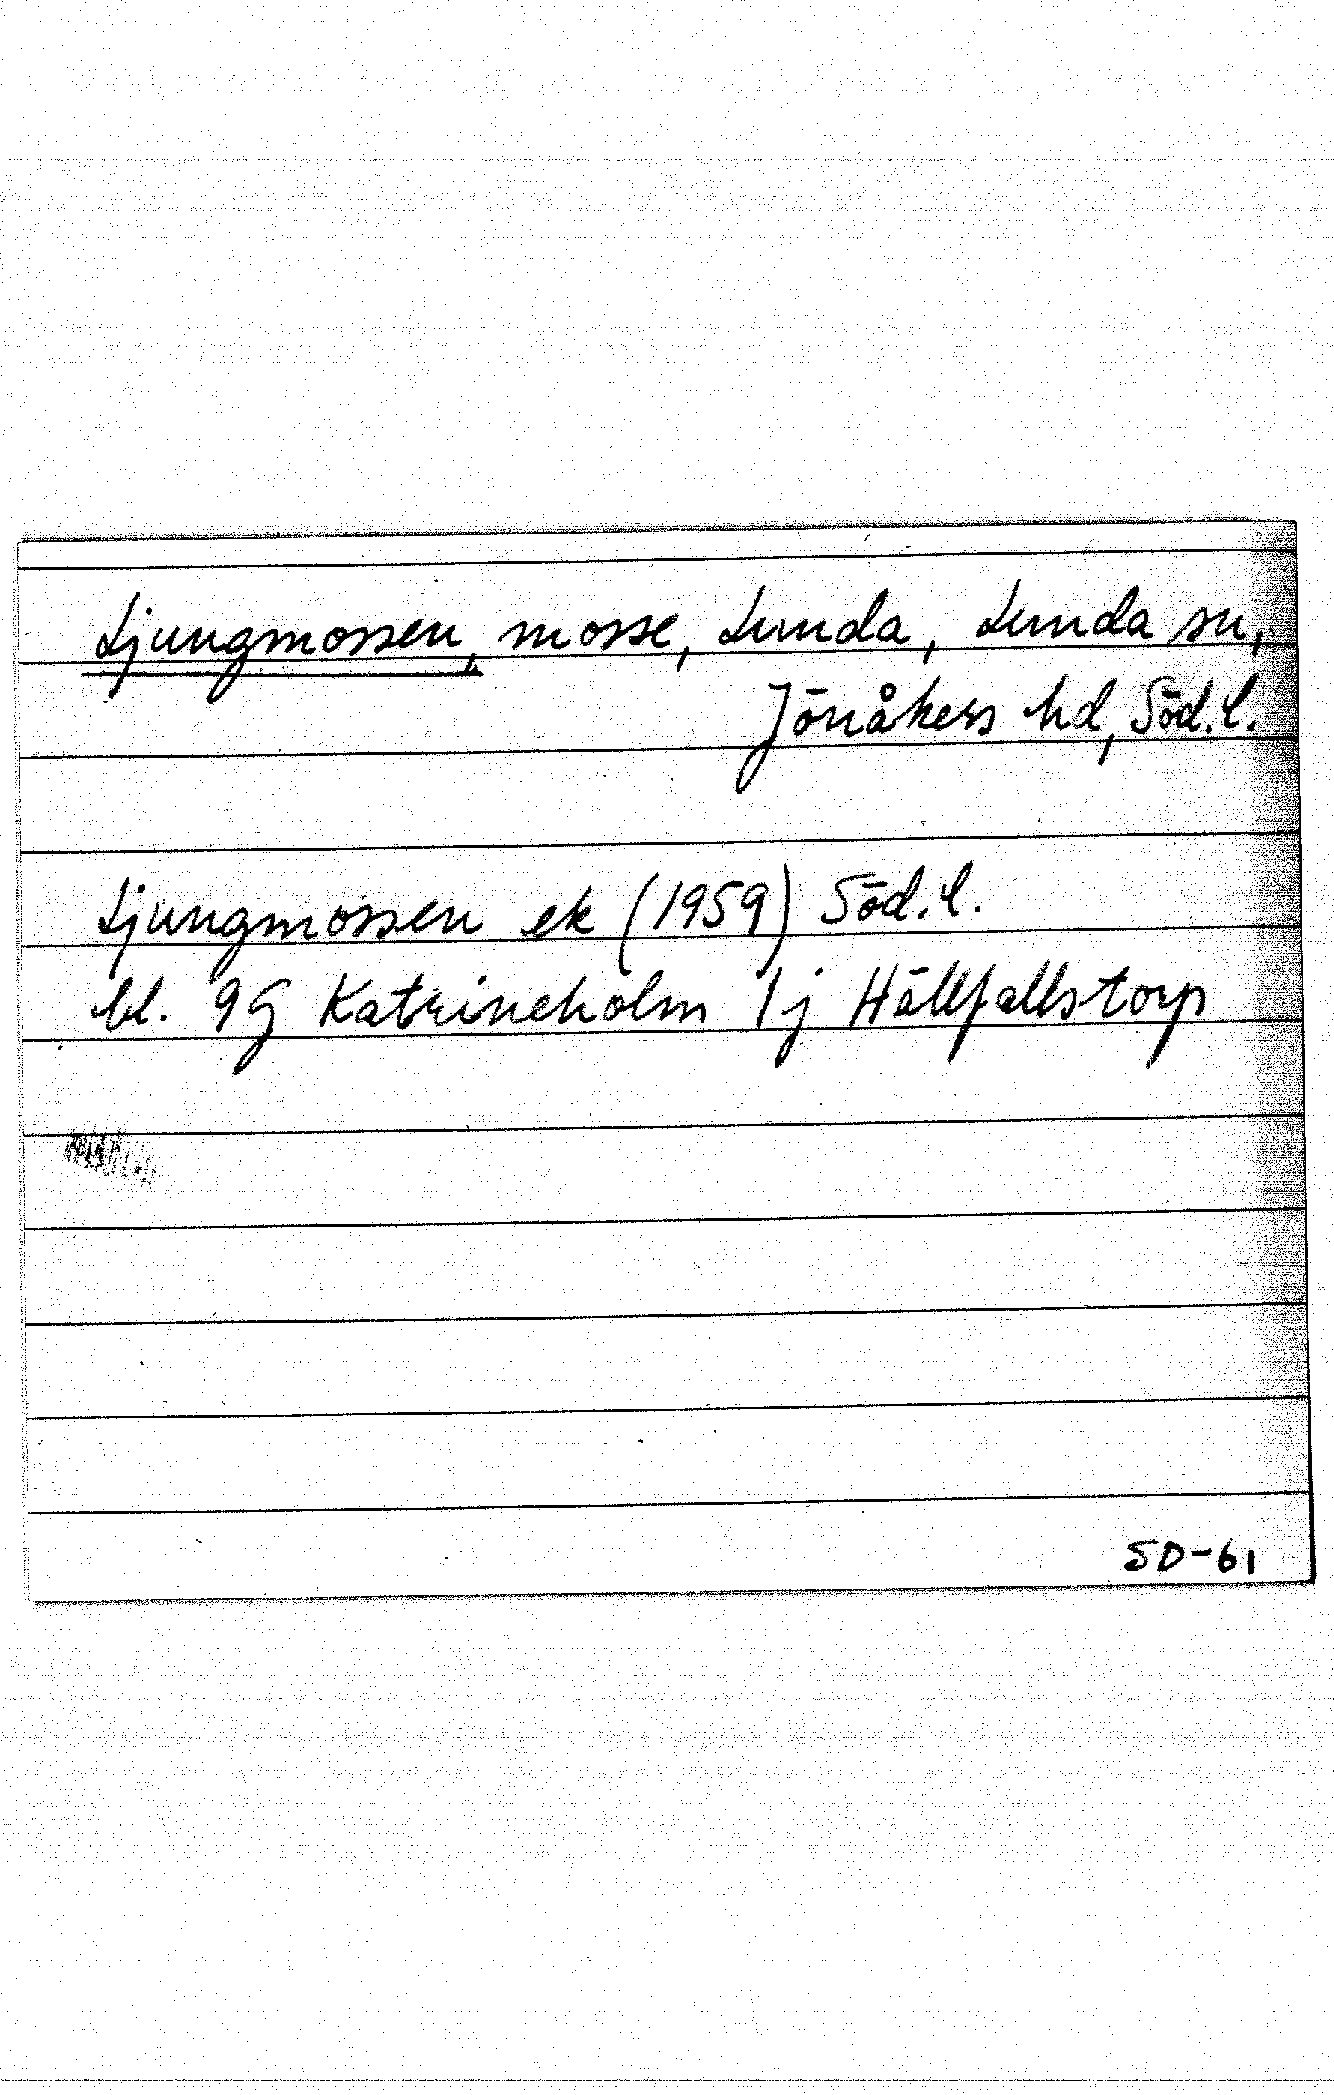 Ljungmossen, mosse, Lunda, Lunda sn,
Jönåkers hd, Söd. l.
Ljungmossen ek (1959) Söd. l.
bl. 9G Katrineholm 1j Hällfallstorp
SD-61